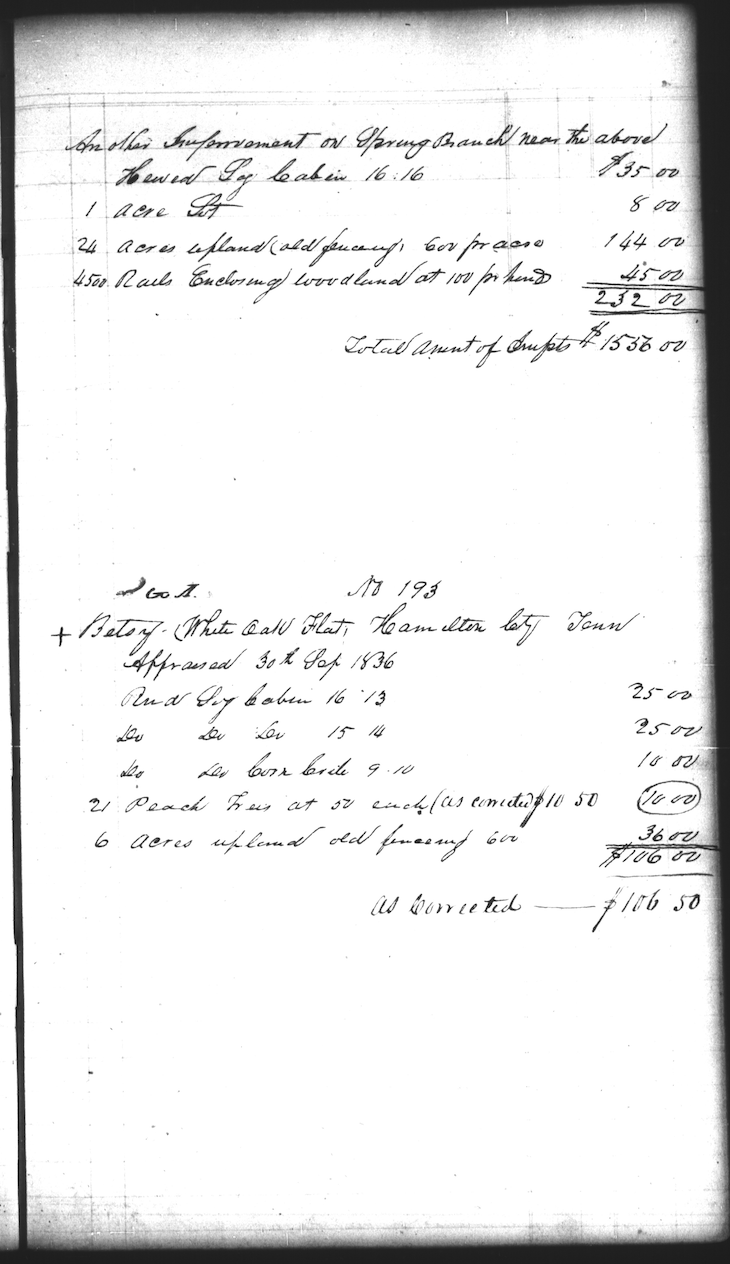 Another Improvement on Spring Branch near the above
Hewed Log Cabin 16.16 $35 00
1 acre Lot 8 00
24 acres upland (old fencing, 600 pr acre 144 00
4500 Rails Enclosing woodland at 100 pr hund 45 00
232 00
Total Amnt of Impts $1556 00
No 193
+ Betsy. (White Oak Flat, Hamilton Cty Tenn
Appraised 30th Sep 1836
Rnd Log Cabin 16 13 25 00
Do Do Do 15 14 25 00
Do Do Corn Crib 9.10 10 00
21 Peach Trees at 50 each (as corrected $10 50 10 00
6 Acres upland old fenceing 600 36 00
$106 00
As Corrected — $106 50